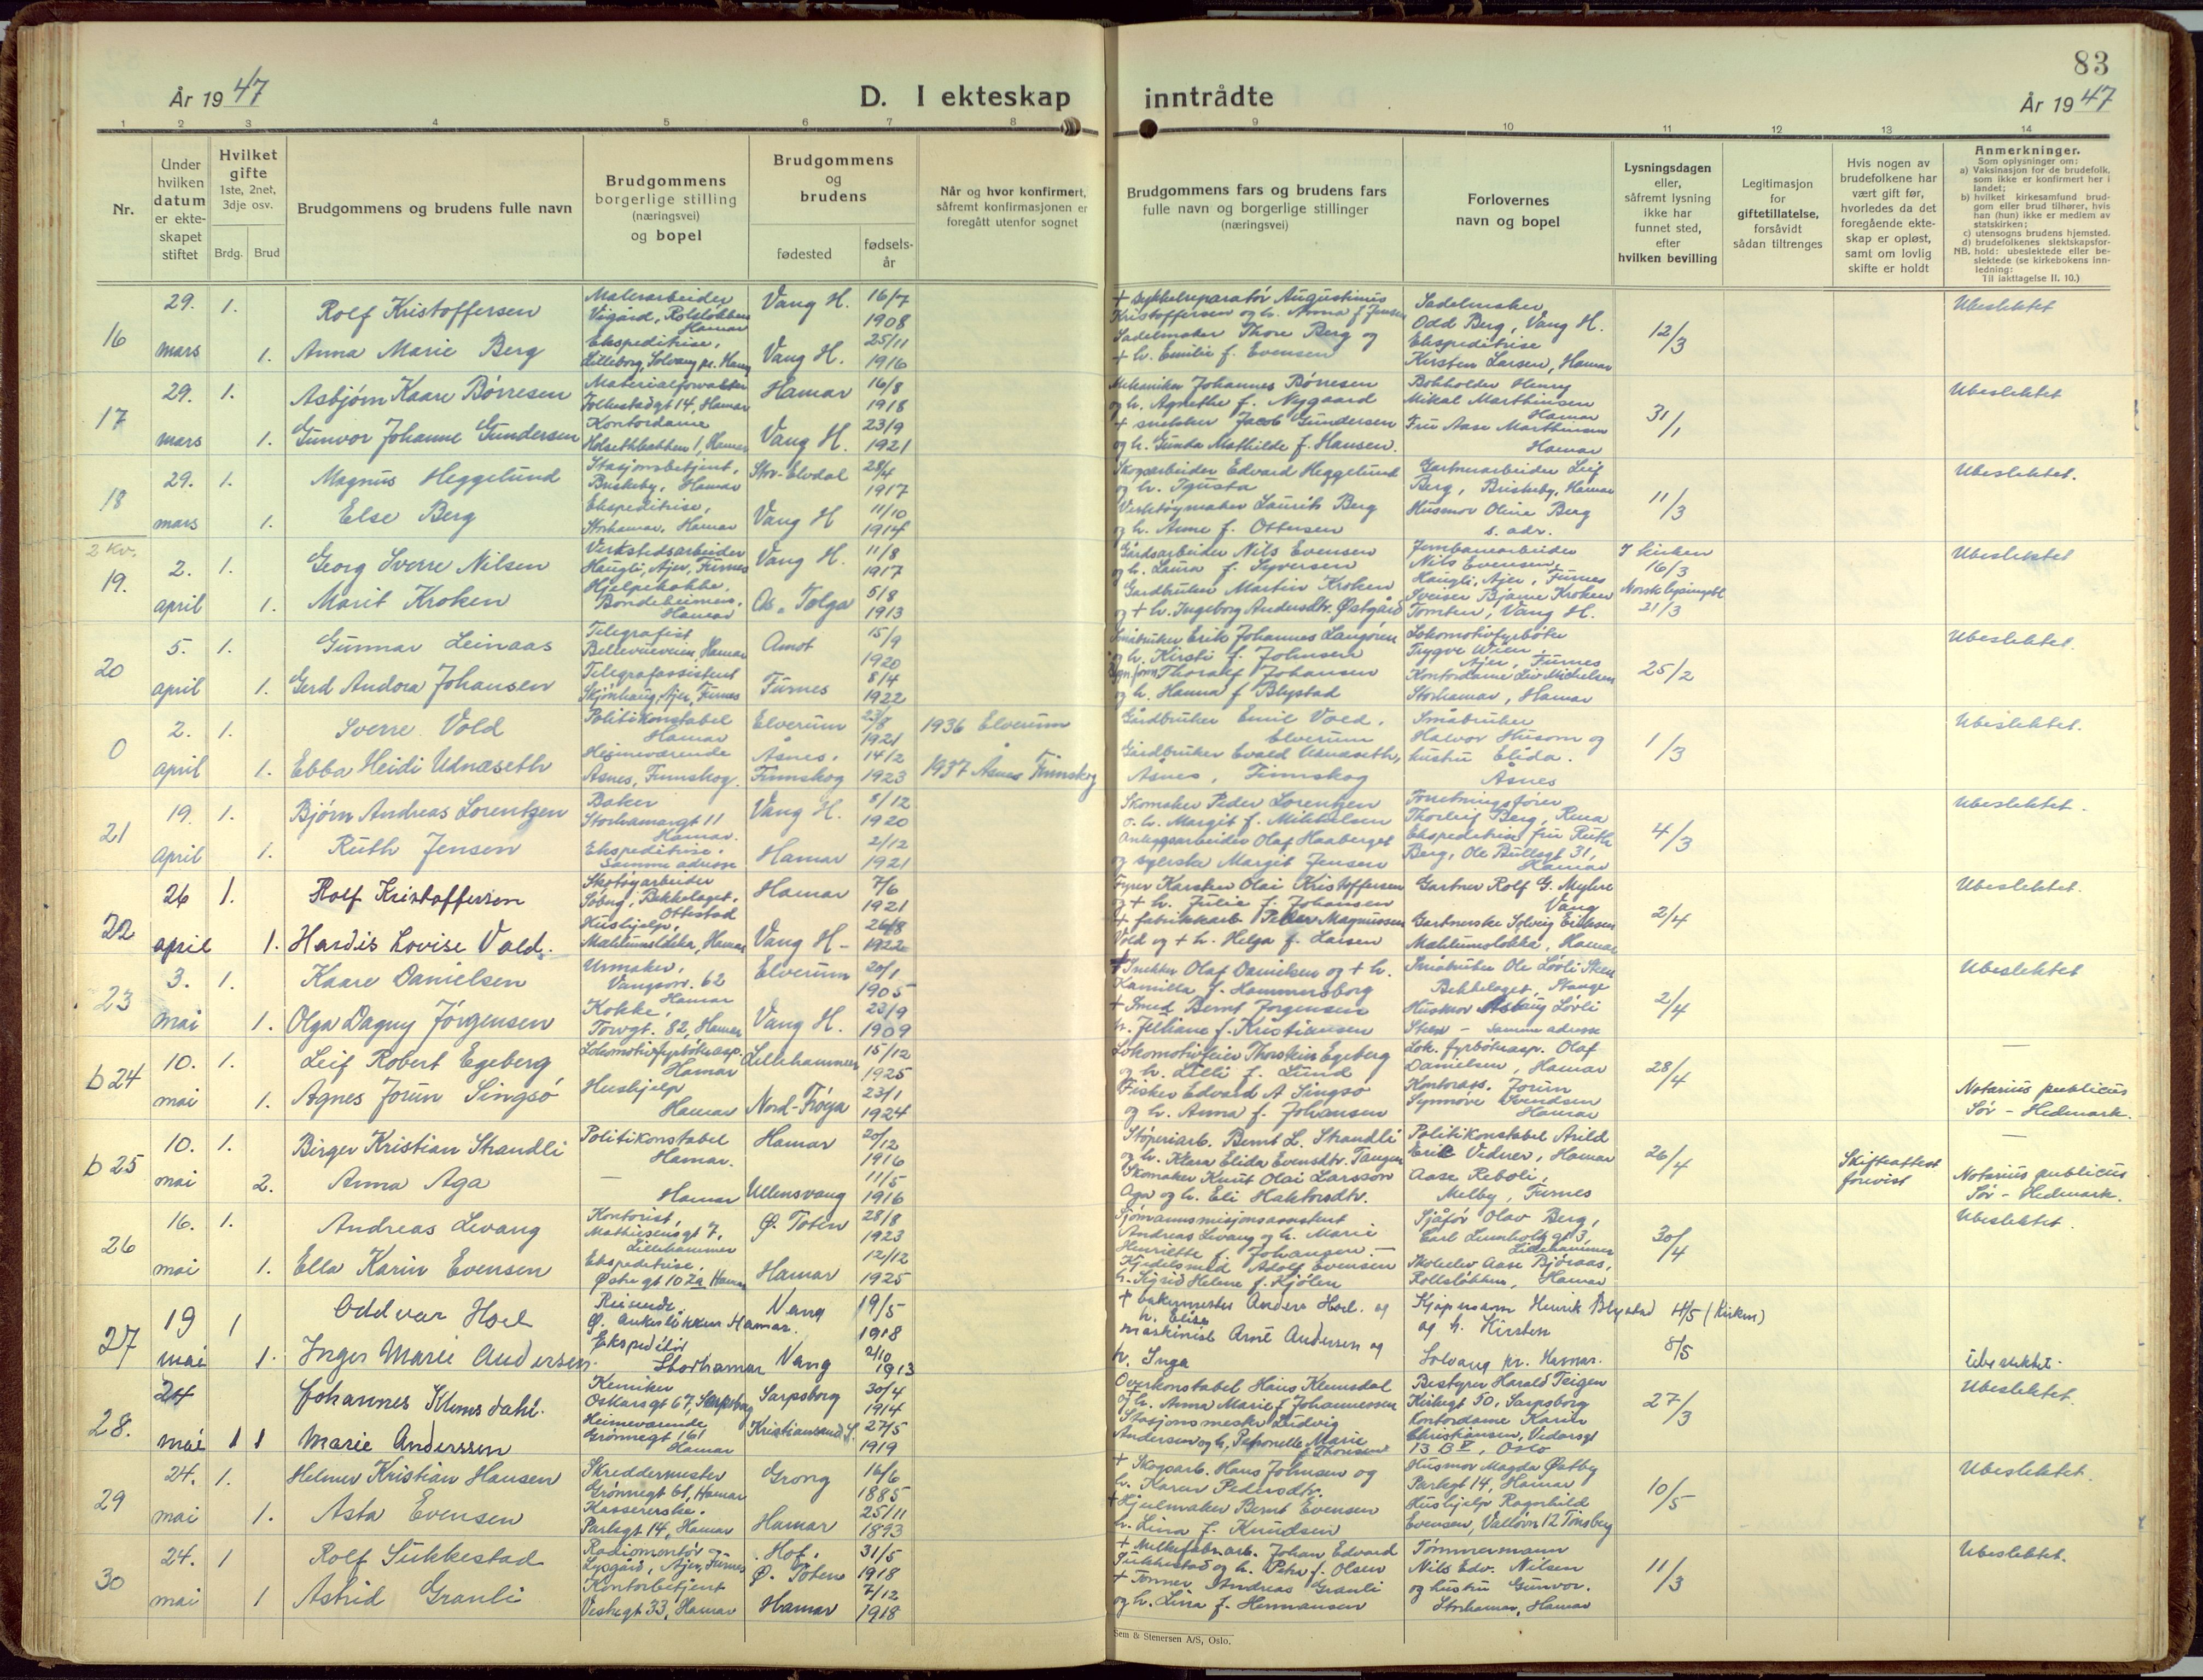 83
År 1947
D. I ekteskap inntrådte
År 1947
1 2 3 4 5 6 7 8 9 10 11 12 13 14
Nr.
Under hvilken datum er ekteskapet stiftet
Hvilket gifte
1ste, 2net, 3dje osv.
Brdg.
Brud
Brudgommens og brudens fulle navn
Brudgommens borgerlige stilling (næringsvei) og bopel
Brudgommens og brudens
fødested
fødselsår
Når og hvor konfirmert, såfremt konfirmasjonen er foregått utenfor sognet
Brudgommens fars og brudens fars fulle navn og borgerlige stillinger (næringsvei)
Forlovernes navn og bopel
Lysningsdagen eller, såfremt lysning ikke har funnet sted, efter hvilken bevilling
Legitimasjon for giftetillatelse, forsåvidt sådan tiltrenges
Hvis nogen av brudefolkene har vært gift før, hvorledes da det foregående ekteskap er opløst, samt om lovlig skifte er holdt
Anmerkninger.
Som oplysninger om:
a) Vaksinasjon for de brudefolk, som ikke er konfirmert her i landet;
b) hvilket kirkesamfund brudgom eller brud tilhører, hvis han (hun) ikke er medlem av statskirken;
c) utensogns brudens hjemsted.
d) brudefolkenes slektskapsforhold: ubeslektede eller beslektede (se kirkebokens innledning:
NB.
Til iakttagelse II. 10.)
16
29. mars
1.
Rolf Kristoffersen
Malerarbeider
Vigård, Rolsløkken
Hamar
Vang H.
16/7 1908
+ sykkelreparatør Augustinus
Kristoffersen og h. Anna f. Jensen
Sadelmaker
Odd Berg, Vang H.
12/3
Ubeslektet
1.
Anna Marie Berg
Ekspeditrise,
Lilleborg, Solvang pr. Hamar
Vang H.
25/11 1916
Sadelmaker Thore Berg og
+ h. Emilie f. Evensen
Ekspeditrise
Kirsten Larsen, Hamar
17
29. mars
1.
Asbjørn Kaare Børresen
Materialforvalter
Folkestadgt 14, Hamar
Hamar
16/8 1918
Mekaniker Johannes Børresen
og h. Agnethe f. Nygaard
Bokholder Henry
Mikal Marthinsen
Hamar
31/1
Ubeslektet
1.
Gunvor Johanne Gundersen
Kontordame
Holsethbakken 1, Hamar
Vang H.
23/9 1921
+ snekker Jacob Gundersen
og h. Gunda Mathilde f. Hansen.
Fru Aase Marthinsen
Hamar
18
29. mars
1.
Magnus Heggelund
Stasjonsbetjent,
Briskeby, Hamar
Stor-Elvdal
28/4 1917
Skogsarbeider Edvard Heggelund
og h. Igusta
Gartnerarbeider Leif
Berg, Briskeby, Hamar
11/3
Ubeslektet.
1.
Else Berg
Ekspeditrise,
Storhamar, Hamar
Vang H
11/10 1914
Verktøymaker Laurits Berg
og h. Anne f. Ottersen
Husmor Oline Berg
s. adr.
2 Kv.
19.
2. april
1.
Georg Sverre Nilsen
Verkstedsarbeider
Haugli, Ajer, Furnes
Vang H.
11/8 1917
Gårdsarbeider Nils Evensen
og h. Laura f. Syversen
Jernbanearbeider
Nils Evensen,
Haugli, Ajer, Furnes
I kirken
16/3
Ubeslektet
1.
Marit Kroken
Hjelpekokke,
Bondeheimen,
Hamar
Os, Tolga
5/8 1913
Gardbruker Martin Kroken
og + h. Ingeborg Andersdtr. Østgård
Sveiser Bjarne Kroken
Tomten, Vang H.
21/3
20
5. april
1.
Gunnar Leinaas
Telegrafist
Bellevueveien, Hamar
Amot
15/9 1920
Småbruker Erik Johannes Langøren
og h. Kirsti f. Johnsen
Lokomotivfyrbøter
Trygve Wien,
Ajer, Furnes
25/2
Ubeslektet.
1.
Gerd Andora Johansen
Telegrafassistent
Skjønhaug, Ajer, Furnes
Furnes
8/4 1922
Thoralf Johansen
og h. Hanna f Blystad
Kontordame Liv Michelsen
Storhamar, Hamar
0
2. april
1.
Sverre Vold
Politikonstabel
Hamar
Elverum
23/8 1921
1936 Elverum
Gårdbruker Emil Vold.
Elverum
Småbruker
Halvor Husom og
hustru Elida.
Åsnes
1/3
Ubeslektet.
1.
Ebba Heidi Udnæseth
Heimeværende
Åsnes, Finnskog.
Åsnes, Finnskog
14/2 1923
1937 Åsnes Finnskog
Gårdbruker Evald Udnæseth,
Åsnes, Finnskog
21
19. april
1.
Bjørn Andreas Lorentzen
Baker
Storhamargt 11
Hamar.
Vang H.
8/12 1920
Skomaker Peder Lorentzen
o. h. Margit f. Mikkelsen
Forretningsfører
Thorleif Berg, Rena
4/3
Ubeslektet.
1.
Ruth Jensen
Ekspeditrise.
Samme adresse
Hamar
2/12 1921
Anleggsarbeider Olaf Haaberget
og syerske Margit Jensen
Ekspeditrise fru Ruth
Berg, Ole Bullsgt 31,
Hamar
22
26 april
1.
Rolf Kristoffersen
Skotøyarbeider
Solberg, Bekkelaget,
Ottestad
Hamar
7/6 1921
Fyrer Karsten Olai Kristoffersen
og + h. Julie f. Johansen
Gartner Rolf G. Myhre
Vang
2/4
Ubeslektet.
1.
Hardis Lovise Vold.
Hushjelp,
Mæhlumsløkka, Hamar
Vang H-
26/8 1922
+ fabrikkarb. Peder Magnussen
Vold og + h. Helga f. Larsen
Gartnerske Solveig Eriksen
Mæhlumsløkka, Hamar
23
3. mai
1.
Kaare Danielsen
Urmaker,
Vangsv. 62
Hamar
Elverum
20/1 1905
+ Snekker Olaf Danielsen og + h.
Kamilla f. Hammersborg
Småbruker Ole Løvli Steen
Bekkelaget, Stange
2/4
Ubeslektet
1.
Olga Dagny Jørgensen
Kokke,
Torvgt. 82, Hamar
Vang H.
23/9 1909
+ Smed Bernt Jørgensen
h. Jelliane f. Kristiansen
Husmor Aslaug Løvli
Steen - samme adresse
b 24
10. mai
1.
Leif Robert Egeberg
Lokomotivfyrbøterasp.
Hamar
Lillehammer
15/12 1925
Lokomotivfører Thorstein Egeberg
og h. Lilli f. Lund
Lok. fyrbøterasp. Olaf
Danielsen, Hamar
28/4
—
1.
Agnes Jorun Singsø
Hushjelp
Hamar
Nord-Frøya
23/1 1924
Fisker Edvard A Singsø
og h. Anna f. Johansen
Kontorass. Jorun
Synnøve Svendsen
Hamar
Notarius publicus
Sør - Hedmark.
b 25
10. mai
1.
Birger Kristian Strandli
Politikonstabel
Hamar.
Hamar
20/12 1916
Støperiarb. Bernt L. Strandli
og h. Klara Elida Evensdtr. Tangen
Politikonstabel Arild
Eric Viderer, Hamar
26/4
—
2.
Anna Aga
—
Hamar
Ullensvang
11/5 1916
Skomaker Knut Olai Larsson
Aga og h. Eli Haktorsdtr.
Aase Reboli,
Melby, Furnes
Skifteattest
forevist
Notarius publicus
Sør - Hedmark.
26
16. mai
1.
Andreas Levang
Kontorist,
Mathiesensgt 7,
Lillehammer
Ø. Toten
28/8 1923
Sjømannsmisjonsassistent
Andreas Levang og h. Marie
Henriette f. Johansen. -
Sjåfør Olav Berg,
Carl Lumholtzgt 3,
Lillehammer
30/4
Ubeslektet.
1.
Ella Karin Evensen
Ekspeditrise,
Østregt 102a Hamar
Hamar
12/12 1925
Kjedelsmed Adolf Evensen
h. Sigrid Helene f. Kjølen
Skoleelev Aase Bjøraas,
Rollsløkken, Hamar
27
19 mai
1
Oddvar Hoel
Reisende.
Ø. Ankerløkken Hamar.
Vang
19/5 1918
+ bakermester Anders Hoel. og
h. Elise
Kjøpmann Henrik Blystad
og h. Kirsten
4/5 (Kirken)
1.
Inger Marie Andersen.
Ekspeditør
Storhamar
Vang
2/10 1913
Maskinist Arne Andersen og
h. Inga
Solvang pr. Hamar.
8/5
Ubeslektet.
28.
24 mai
1
Johannes Klemsdahl.
Kemiker
Oskarsgt 67, Sarpsborg
Sarpsborg
30/4 1914
Overkonstabel Hans Klemsdal
og h. Anna Marie f Johannessen
Bestyrer Harald Teigen
Kirkegt 50. Sarpsborg
27/3
Ubeslektet.
1
Marie Anderssen
Heimeværende
Grønnegt 161
Hamar
Kristiansand S.
27/5 1919
Stasjonsmester Ludvig
Andersen og h. Petronelle Marie
f. Thorsen
Kontordame Karin
Christiansen, Vidarsgt
13 B V, Oslo
29
24. mai
1.
Helmer Kristian Hansen
Skreddermester
Grønnegt 61, Hamar
Grong
16/6 1885
+ Skogsarb. Hans Johnsen og
h. Karen Pedersdtr.
Husmor Magda Østby
Parkgt 14, Hamar
10/5
Ubeslektet.
1.
Asta Evensen
Kassererske.
Parkgt 14, Hamar
Hamar
25/11 1893
+ Hjulmaker Bernt Evensen
h. Lina f. Knudsen
Hushjelp Ragnhild
Evensen, Valløvn 12 Tønsberg
30
24. mai
1
Rolf Sukkestad
Radiomontør
Lysgård, Ajer, Furnes
Hof, Ø. Toten
31/5 1918
+ Melkefabr.arb. Johan Edvard
Sukkestad og h. Petra f. Olsen
Tømmermann
Nils Edv. Nilsen
11/3
Ubeslektet.
1
Astrid Granli
Kontorbetjent
Vestregt 33, Hamar
Hamar
7/12 1918
+ Tømmer Andreas Granli
og h. Lina f. Hermansen
og hustru Gunvor.
Storhamar, Hamar
Sem & Stenersen A/S, Oslo.